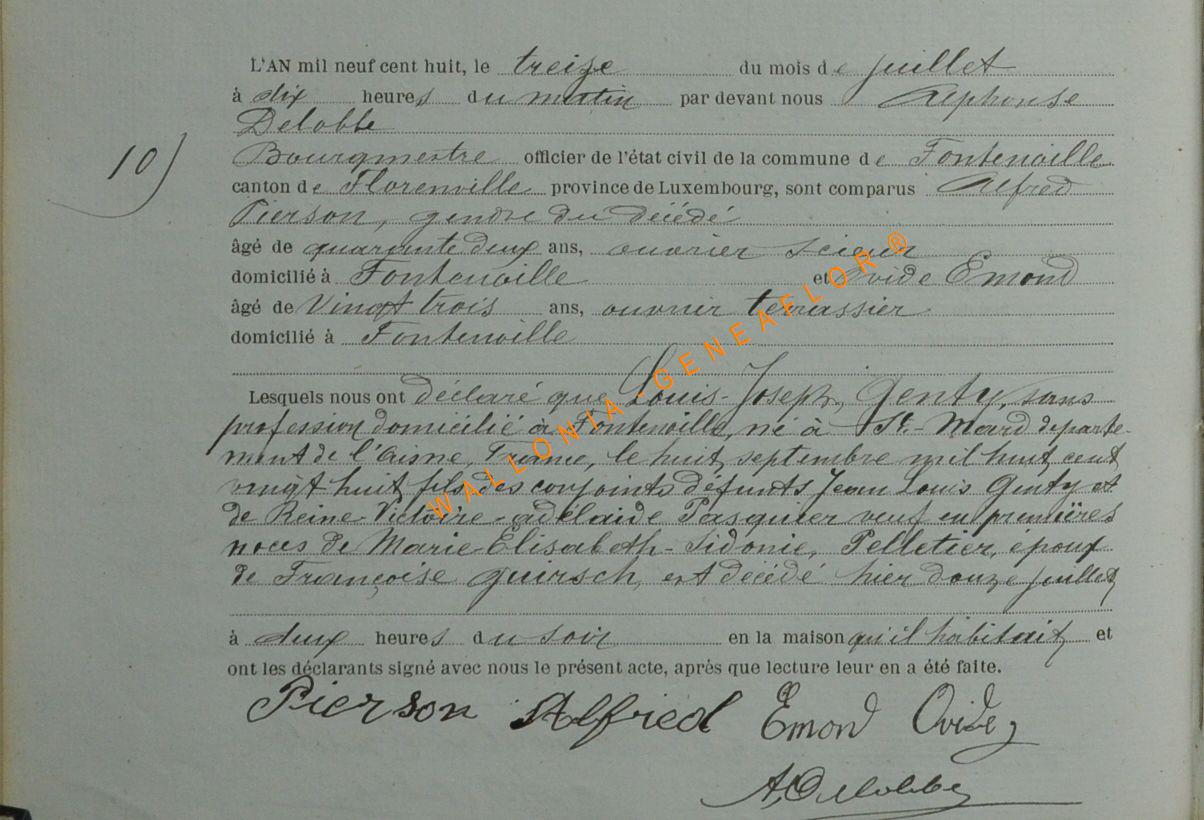 L'AN mil neuf cent huit, le treize du mois de juillet
à dix heures du matin par devant nous Alphonse
Delobbe
10)
Bourgmestre officier de l'état civil de la commune de Fontenoille
canton de Florenville province de Luxembourg, sont comparus Alfred
Pierson, gendre du décédé
âgé de quarante deux ans, ouvrier scieur
domicilié à Fontenoille et Ovide Emond
âgé de Vingt trois ans, ouvrier terrassier
domicilié à Fontenoille
Lesquels nous ont déclaré que Louis-Joseph, Genty, sans
profession domicilié à Fontenoille, né à St.-Mard départe-
ment de l'Aisne, France, le huit septembre mil huit cent
vingt huit fils des conjoints défunts Jean Louis Genty et
de Reine-Victoire-adélaïde Pasquier veuf en premières
noces de Marie-Elisabeth-Sidonie, Pelletier, époux
de Françoise Guirsch, est décédé hier douze juillet
à deux heures du soir en la maison qu'il habitait et
ont les déclarants signé avec nous le présent acte, après que lecture leur en a été faite.
Pierson Alfred Emond Ovide
A, Delobbe
WALLONIA-GENEAFLOR®